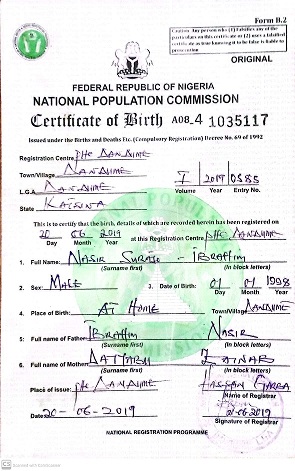 Form B.2
Caution: Any person who (1) falsifies any of the
particulars on this certificate or (2) uses a falsified
certificate as true knowing it to be false is liable to
prosecution
ORIGINAL
FEDERAL REPUBLIC OF NIGERIA
NATIONAL POPULATION COMMISSION
Certificate of Birth A08_4 1035117
Issued under the Births and Deaths Etc. (Compulsory Registration) Decree No. 69 of 1992
Registration Centre PHC DANDUME
Town/Village DANDUME
L.G.A. DANDUME
State KATSINA
7 2019 0585
Volume Year Entry No.
This is to certify that the birth, details of which are recorded herein has been registered on
20 06 2019 at this Registration Centre PHC DANDUME
Day Month Year
1. Full Name: NASIR SURAJO - IBRAHIM
(Surname first) (In block letters)
2. Sex: MALE 3. Date of Birth: 01 01 1998
Day Month Year
4. Place of Birth: AT HOME Town/Village DANDUME
5. Full name of Father IBRAHIM NASIR
(Surname first) (In block letters)
6. Full name of Mother ZAINAB
(Surname first) (In block letters)
Place of issue: PHC DANDUME HASSAN GARBA
Name of Registrar
Date: 20-06-2019 20-6-2019
Signature of Registrar
NATIONAL REGISTRATION PROGRAMME
CS Scanned with CamScanner